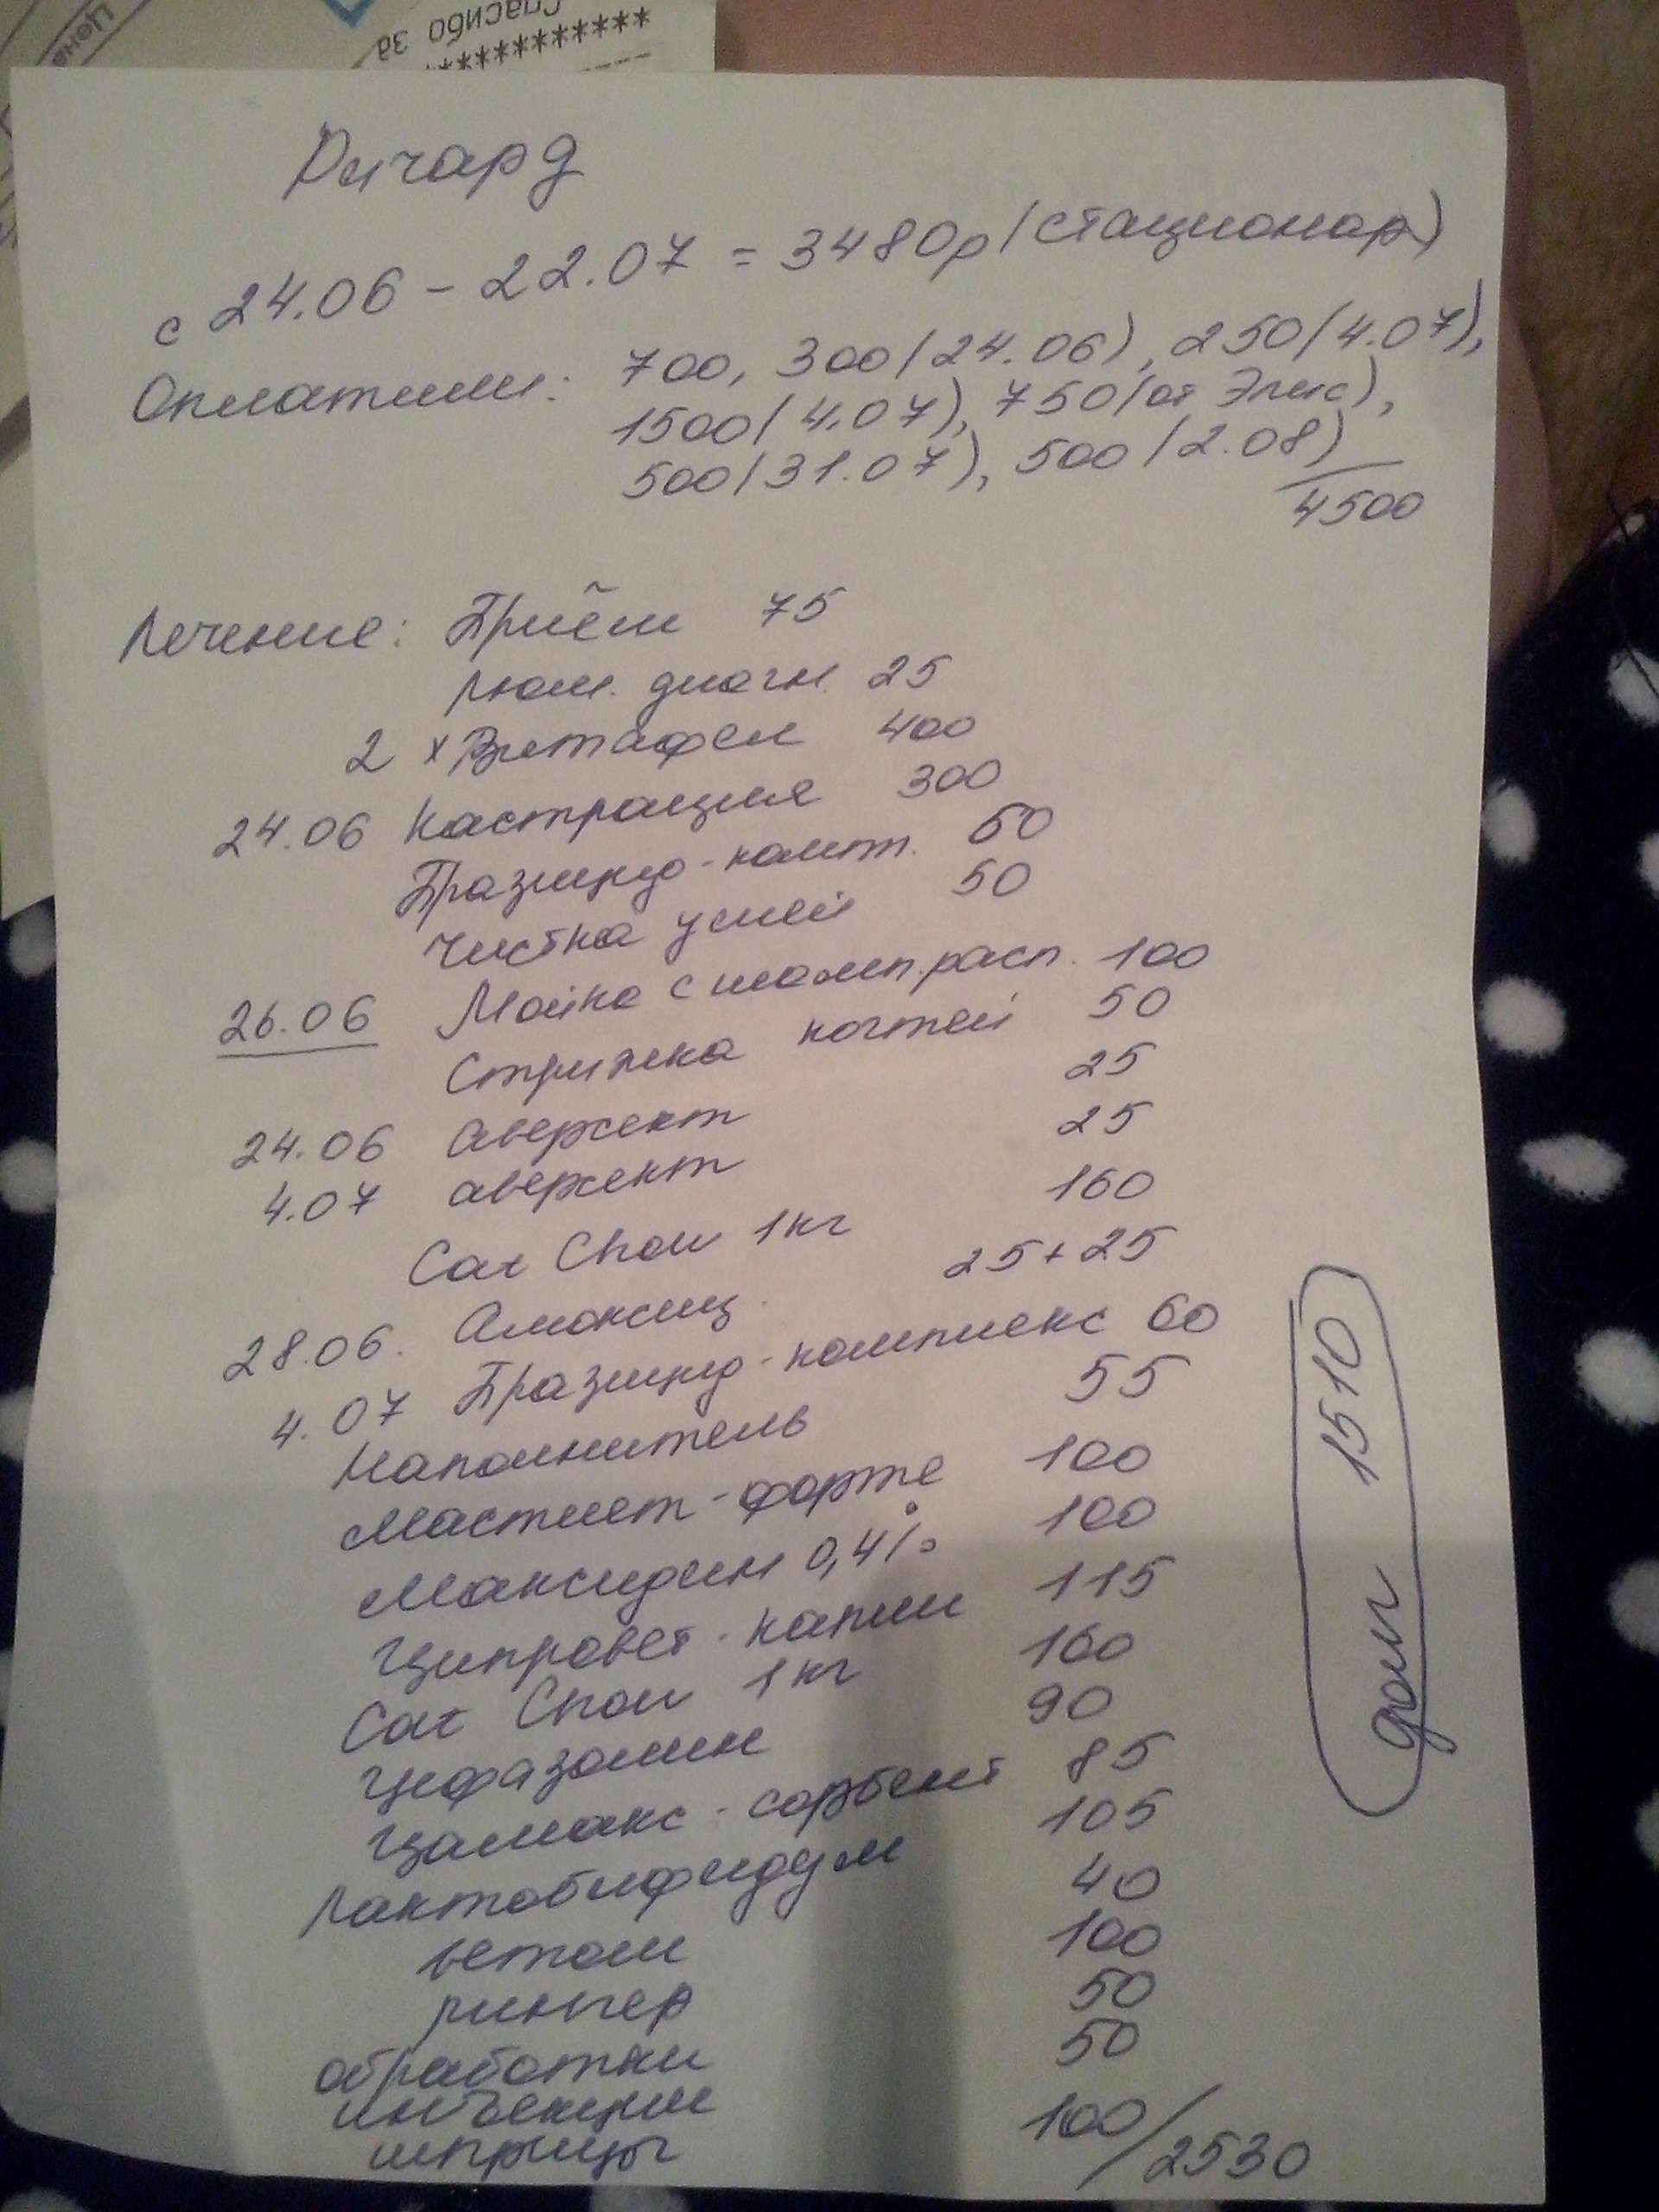 Цены
Спасибо за
***********
Ричард
с 24.06 - 22.07 = 3480р (стационар)
Оплатили: 700, 300 (24.06), 250 (4.07),
1500 (4.07), 750 (от Элис),
500 (31.07), 500 (2.08)
4500
Лечение: Приём 75
Люм. диагн. 25
2 х Витафел 400
24.06 Кастрация 300
Празицид-компт. 60
Чистка ушей 50
26.06 Мойка с шамп.расп. 100
Стрижка ногтей 50
24.06 Аверсект 25
4.07 аверсект 25
Cat Chow 1кг 160
28.06. Амоксиц. 25+25
4.07 Празицид-комплекс 60
Наполнитель 55
Мастиет-форте 100
Максидин 0,4% 100
Ципровет-капли 115
Cat Chow 1кг 160
Цефазолин 90
Цамакс-сорбент 85
Лактобифидум 105
Ветом 40
рингер 100
обработки 50
инъекции 50
шприцы 100/2530
долг 1510